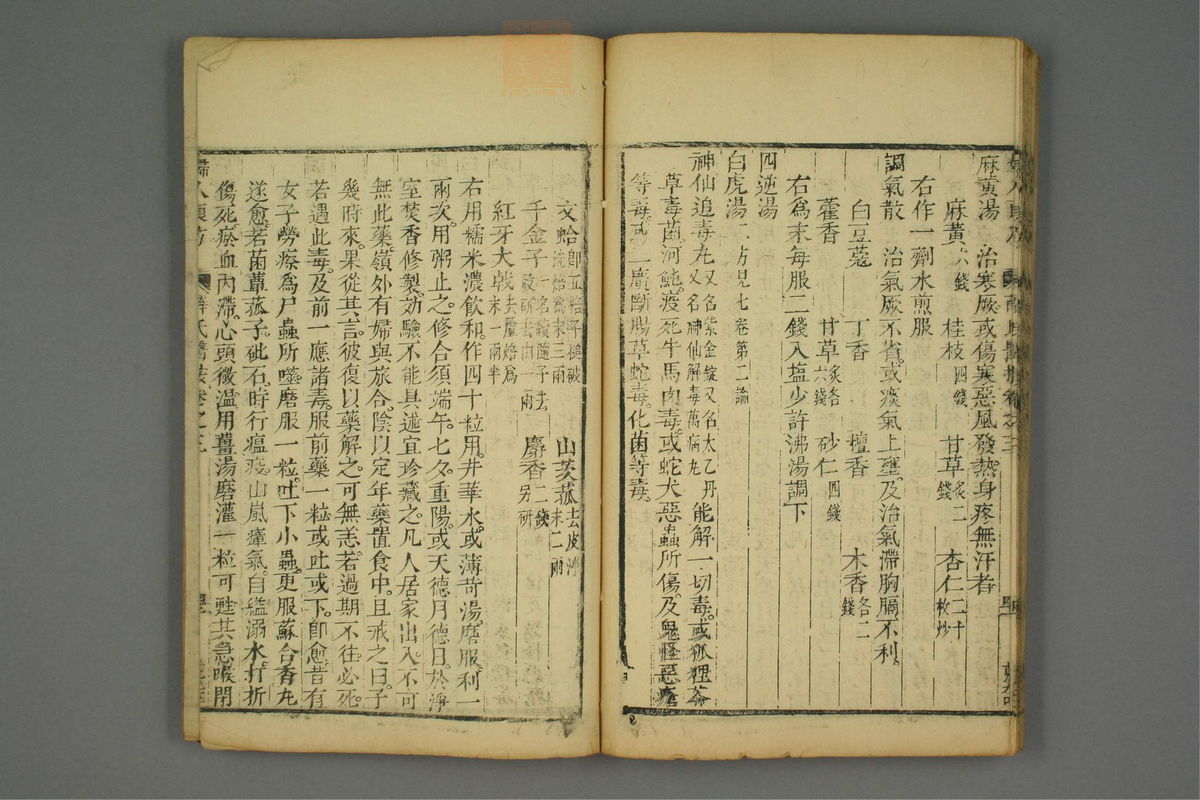 麻黃湯　治寒厥或傷寒惡風發熱身疼無汗者
麻黃六錢　桂枝四錢　甘草炙二錢　杏仁二十枚炒
右作一劑水煎服
調氣散　治氣厥不省或痰氣上壅及治氣滯胸膈不利
白豆蔻　丁香　檀香　木香各二錢
藿香　甘草炙各六錢　砂仁四錢
右爲末每服二錢入塩少許沸湯調下
四逆湯
白虎湯二方見七卷第二論
神仙追毒丸又名紫金錠又名太乙丹又名神仙解毒萬病丸　能解一切毒或狐狸
草毒菌河魨疫死牛馬肉毒或蛇犬惡蟲所傷及鬼怪惡瘡
等毒　一廣斷腸草蛇毒化菌等毒
文蛤即五棓子搥破洗焙爲末三兩　山茨菰去皮淨末二兩
千金子一名續隨子去殻研去由一兩　麝香二錢另研
紅牙大戟去蘆焙爲末一兩半
右用糯米濃飲和作四十粒用井華水或薄苛湯磨服利一
兩次用粥止之修合須端午七夕重陽或天德月德日於淨
室焚香修製効驗不能具述宜珍藏之凡人居家出入不可
無此藥嶺外有婦與旅合陰以定年藥置食中且戒之曰子
幾時來果從其言彼復以藥解之可無恙若過期不往必死
若遇此毒及前一應諸毒服前藥一粒或吐或下即愈昔有
女子勞瘵爲尸蟲所噬磨服一粒吐下小蟲更服蘇合香丸
遂愈若菌蕈菰子砒石時行瘟疫山嵐瘴氣自縊溺水打折
傷死瘀血內滯心頭微溫用薑湯磨灌一粒可甦共急喉閉
婦人良方　薛氏醫按卷之三